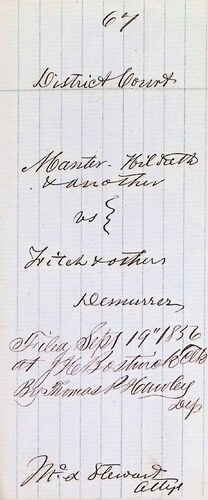 67
District Court
Manter Hildreth
& another
vs
Fitch & others
Demurrer
Filed Sept 19" 1856
at J H Bostwick Clk
By Thomas P Hawley
Dep
Mc & Stewart
Attys